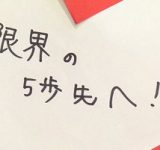 限界の
5歩先へ!